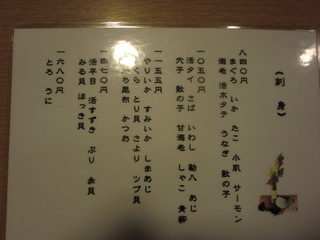 《刺身》
八四〇円
まぐろ いか たこ 小肌 サーモン
海老 活ホタテ うなぎ 数の子
一〇五〇円
活タイ さば いわし 勘八 あじ
穴子 数の子 甘海老 しゃこ 青柳
一一五五円
やりいか すみいか しまあじ
くら とり貝 さより ツブ貝
ち昆布 かつお
一四七〇円
活平目 活すずき ぶり 赤貝
みる貝 ほっき貝
一六八〇円
とろ うに